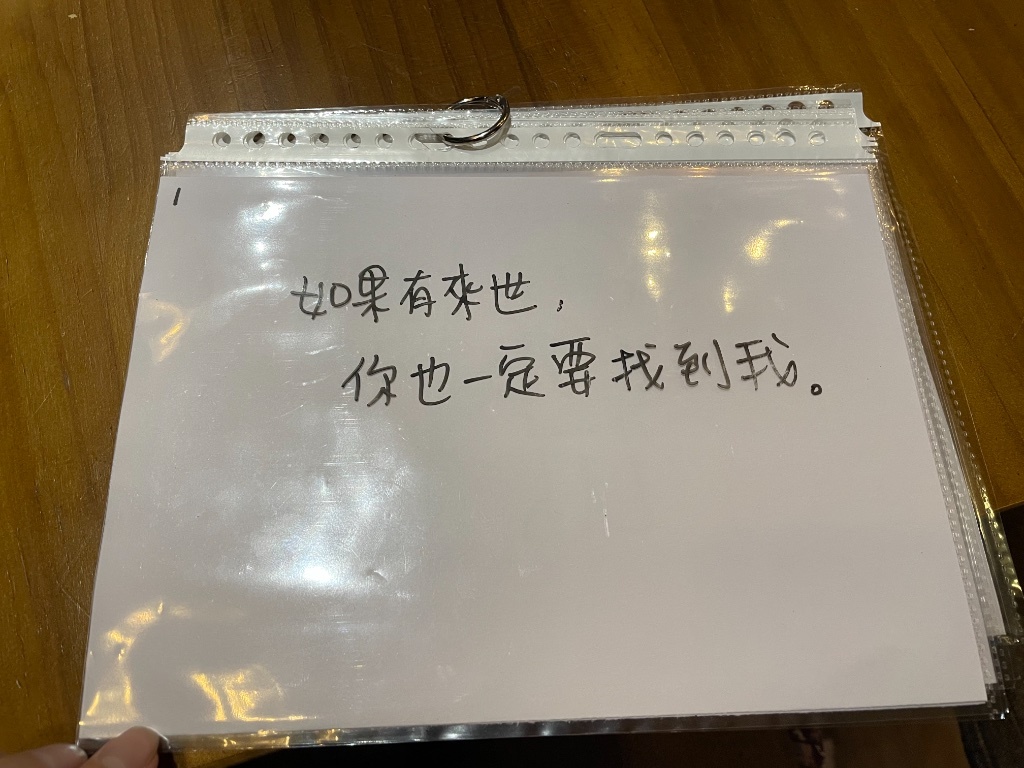 1
如果有來世，
你也一定要找到我。